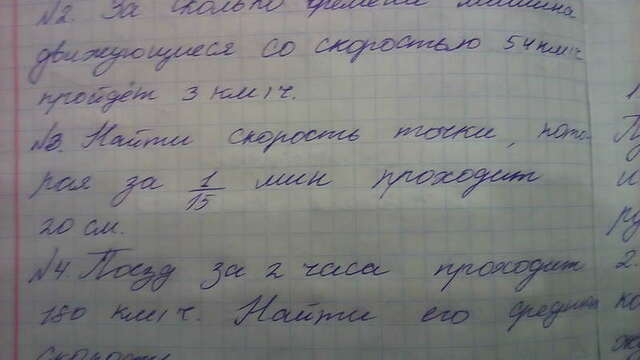 №2. За сколько времени машина
движующиеся со скоростью 54 км/ч
пройдёт 3 км/ч.
№3. Найти скорость точки, кото-
рая за 1/15 мин проходит
20 см.
№4. Поезд за 2 часа проходит
180 км/ч. Найти его средней
скорости